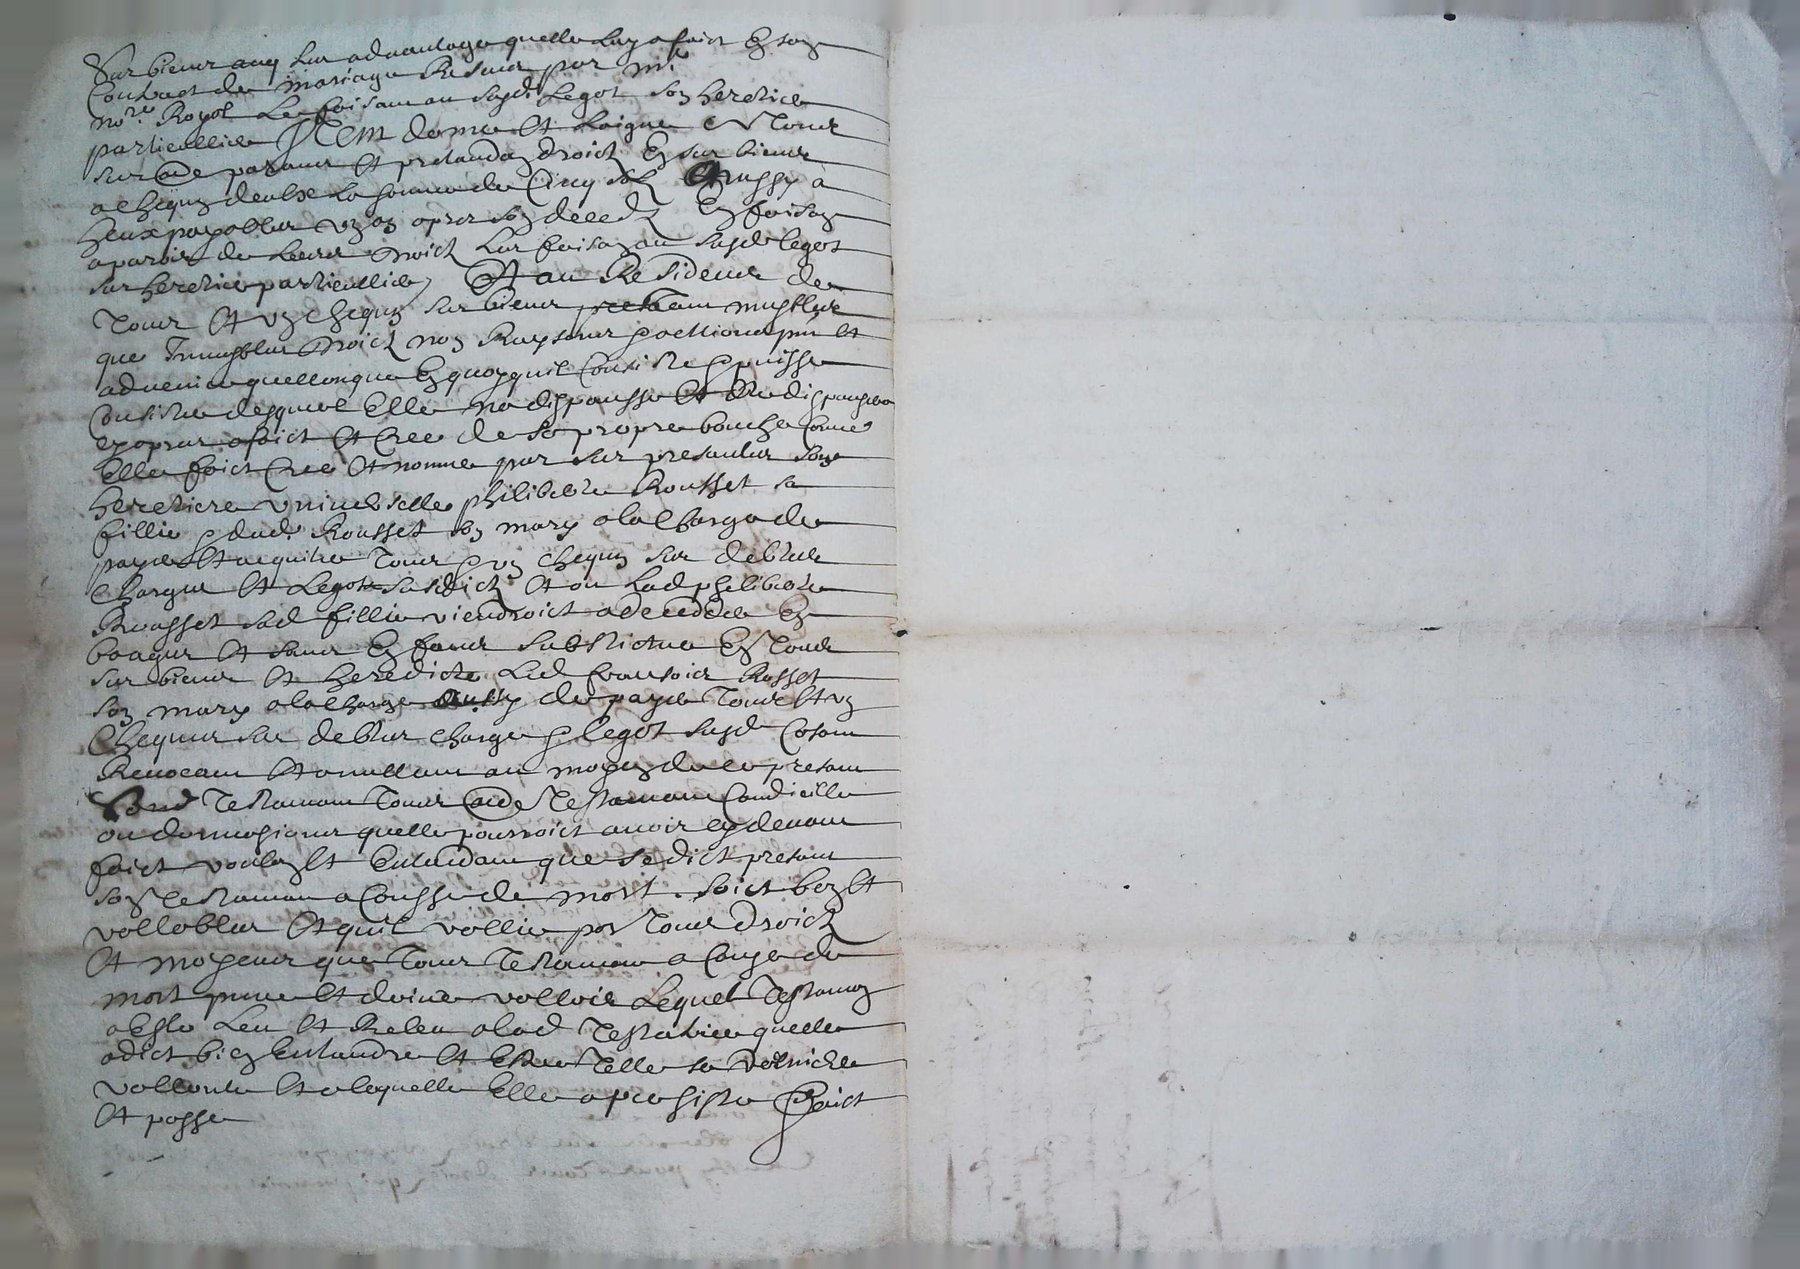 Sur biens aux advantage quelle luy a faict En son
Contract de mariage Receu par Me
no.re Royal Le faisant au susd. Legat son heretier
particullier Item donne Et laigue a Tous
sur aude parans Et pretandan droict En sur biens
a chequn deulx la somme de Cinq sols Et ussy a
heux payables un an apres son decedz En faisan
a partir de leurs droictz Les faisan au susd legat
sur heretier particullier Et au Residence de
Tous Et un chequn sur biens meubles
que Immeubles droictz nons Raysons actions pnt Et
advenir quelconque En quoy quil Consiste puisse
Consister desquel Elle na dispousse Et ne dispousera
cy apres a faict Et Cree de sa propre bouche Comme
Elle faict Cree Et nomme par ses presantes Son
heretiere universelle philiberte Rousset sa
fillie dud. Rousset son mary a la charge de
payer Et aquiter Tous un chequn sur debtes
Charges Et Legats susdictz Et ou Lad philiberte
Rousset sad fillie viendroict a deceder En
bas agee Et sans Enfans Substitue En Tous
sur biens Et heredicte Led francois Rosset
Son mary a la charge aussy de payer Tous Et un
Chequn sur debtes charges legat susd Casant
Revocant Et anullant au moyen de ce presant
Sond Testamant Tous aude Testamant Condicille
ou donnations quelle pourroict avoir cy devant
faict voulan Et Entandant que se dict presant
Son Testamant a Causse de mort soict bon Et
vallable Et quil vallie par Tous droictz
Et moyens que Tous Testamant a Cause de
mort peuve Et doive valloir Lequel Testaman
a Este Leu Et Releu a lad Testatrice quelle
a dict bien Entandre Et Estre Telle sa derniere
vollonte Et a laquelle Elle a persiste Faict
Et passe